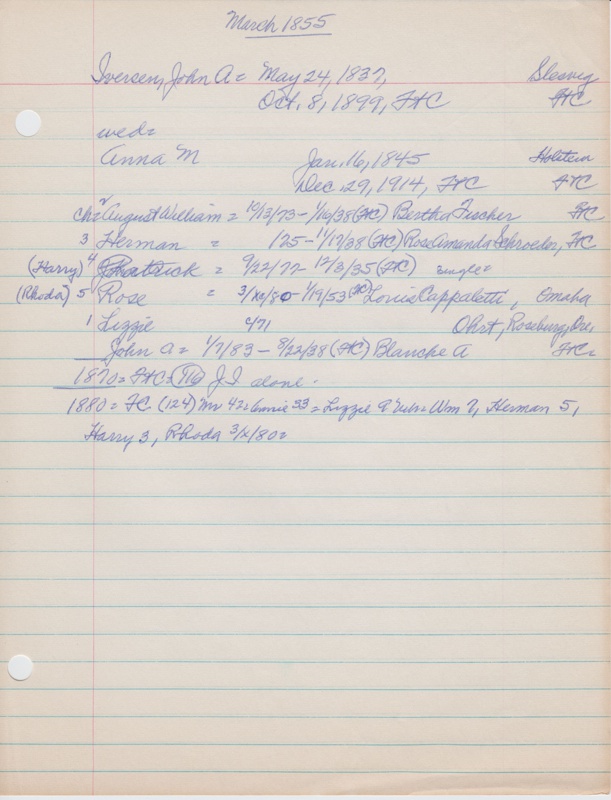 March 1855
Iversen, John A = May 24, 1837, Slesvig
Oct. 8, 1899, FtC FtC
wed=
Anna M Jan. 16, 1845 Holstein
Dec 29, 1914, FtC FtC
ch= 2 August William = 10/13/73 - 1/16/38 (FtC) Bertha Fischer FtC
3 Herman = 1/25 - 11/17/38 (FtC) Rose Amanda Schroeder, FtC
(Harry) 4 = 9/22/77 - 12/3/35 (FtC) single=
(Rhoda) 5 Rose = 3/xx/80 - 1/19/53 (FtC) Louis Cappaletti, Omaha
1 Lizzie c/71 Ohrt, Roseburg, Ore,
John A = 1/7/83 - 8/22/38 (FtC) Blanche A FtC=
1870 = FtC= J I alone.
1880 = FC (124) 42= 33 = Lizzie 9 Wm 7, Herman 5,
Harry 3, Rhoda 3/x/80=